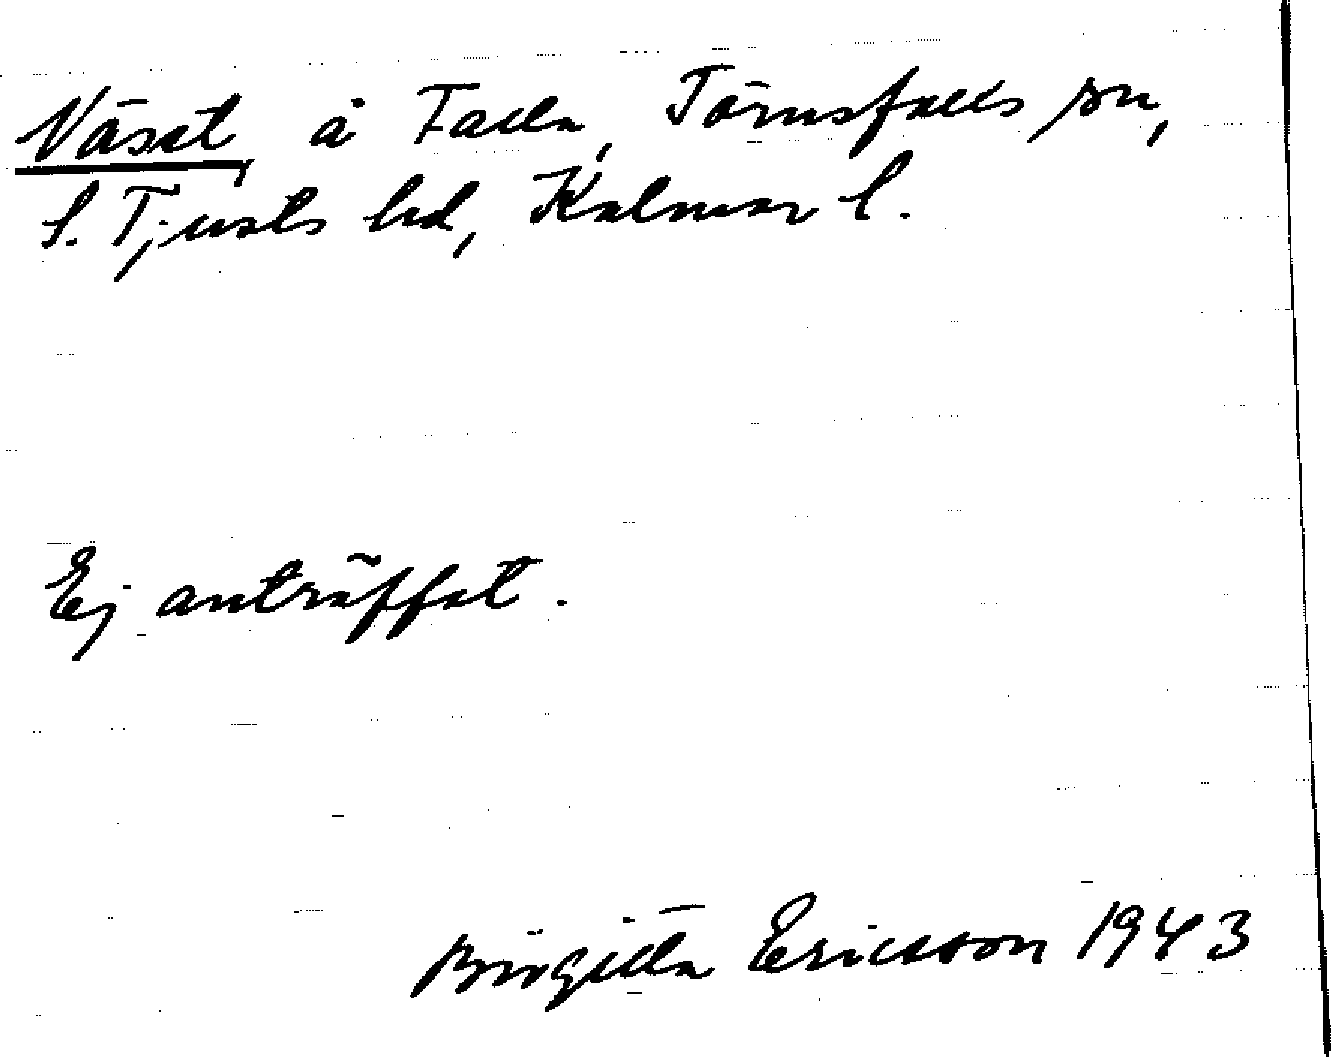 Väsat, å Falla, Törnsfalls sn,
S. Tjusts hd, Kalmar l.
Ej anträffat.
Birgitta Ericsson 1943